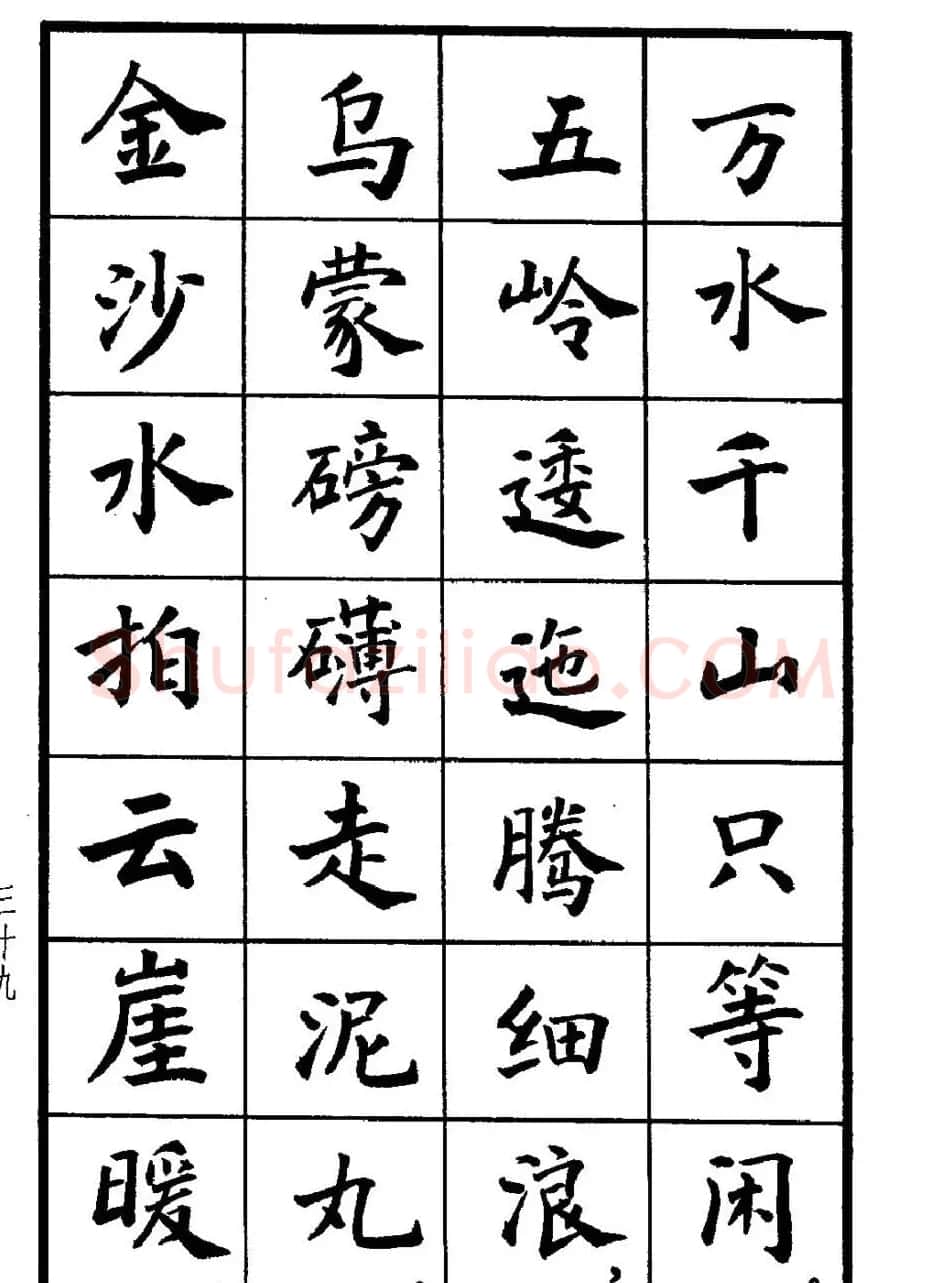 万水千山只等闲。
五岭逶迤腾细浪，
乌蒙磅礴走泥丸。
金沙水拍云崖暖
三十九
Shufaziliao.COM